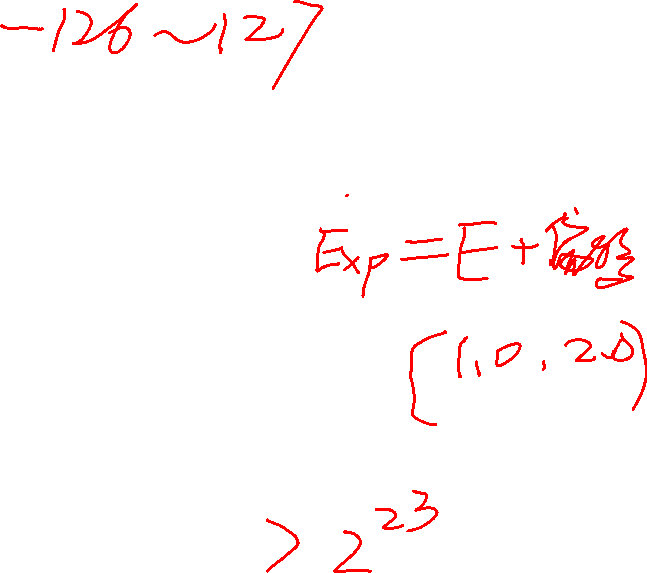 -126~127
Exp=E+偏
[1.0, 2.0)
> 2^23